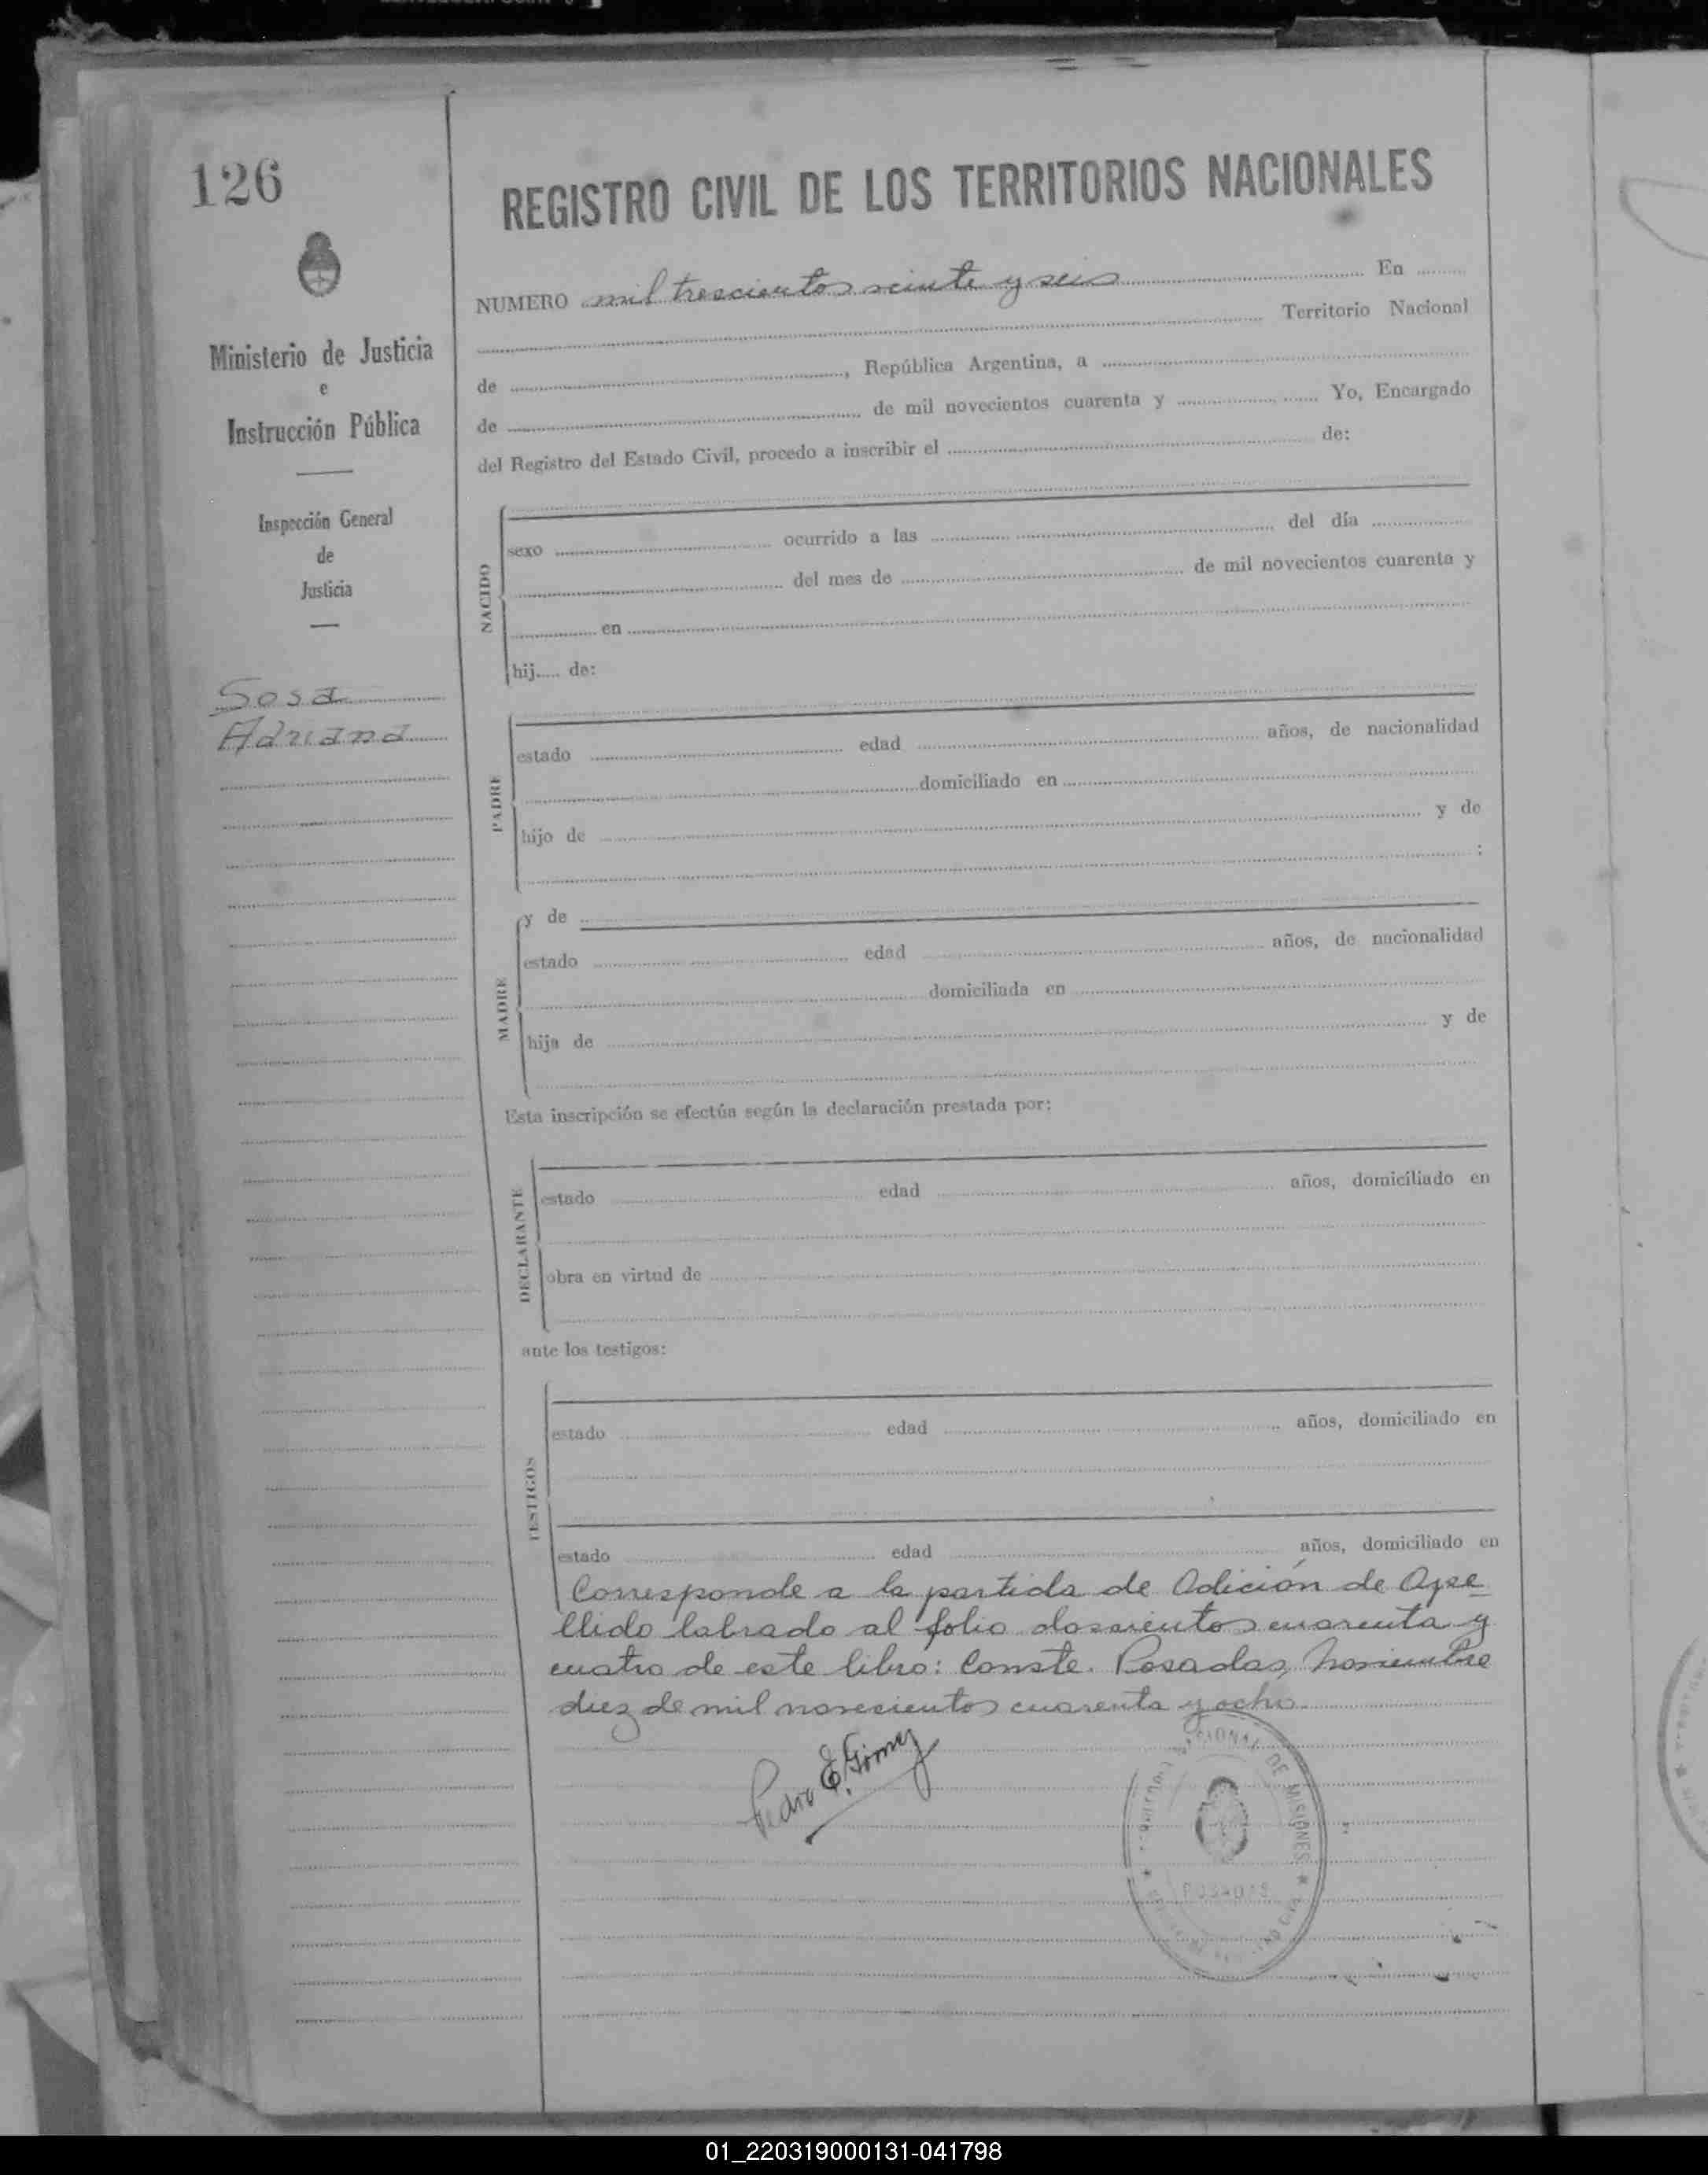 126
Ministerio de Justicia
e
Instrucción Pública
Inspección General
de
Justicia
Sosa
Adriana
REGISTRO CIVIL DE LOS TERRITORIOS NACIONALES
NUMERO mil trescientos veinte y seis En
Territorio Nacional
de , República Argentina, a
de de mil novecientos cuarenta y Yo, Encargado
del Registro del Estado Civil, procedo a inscribir el de:
NACIDO
sexo ocurrido a las del día
del mes de de mil novecientos cuarenta y
en
hij..... de:
PADRE
estado edad años, de nacionalidad
domiciliado en
hijo de y de
:
MADRE
y de
estado edad años, de nacionalidad
domiciliada en
hija de y de
Esta inscripción se efectúa según la declaración prestada por:
DECLARANTE
estado edad años, domiciliado en
obra en virtud de
ante los testigos:
TESTIGOS
estado edad años, domiciliado en
estado edad años, domiciliado en
Corresponde a la partida de Adición de Ape=
llido labrado al folio doscientos cuarenta y
cuatro de este libro: Conste. Posadas, Noviembre
diez de mil novecientos cuarenta y ocho.
Pedro E. Gómez
NACIONAL DE MISIONES
POSADAS
01_220319000131-041798